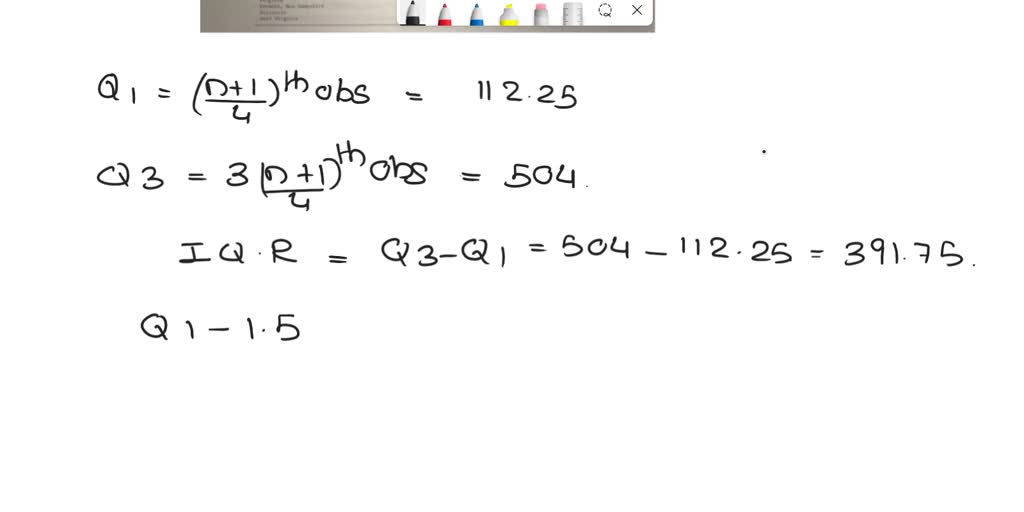 Vermont, New Hampshire
Wisconsin
West Virginia
Q1 = (n+1/4)th obs = 112.25
Q3 = 3(n+1/4)th obs = 504.
IQ.R = Q3-Q1 = 504 - 112.25 = 391.75.
Q1 - 1.5